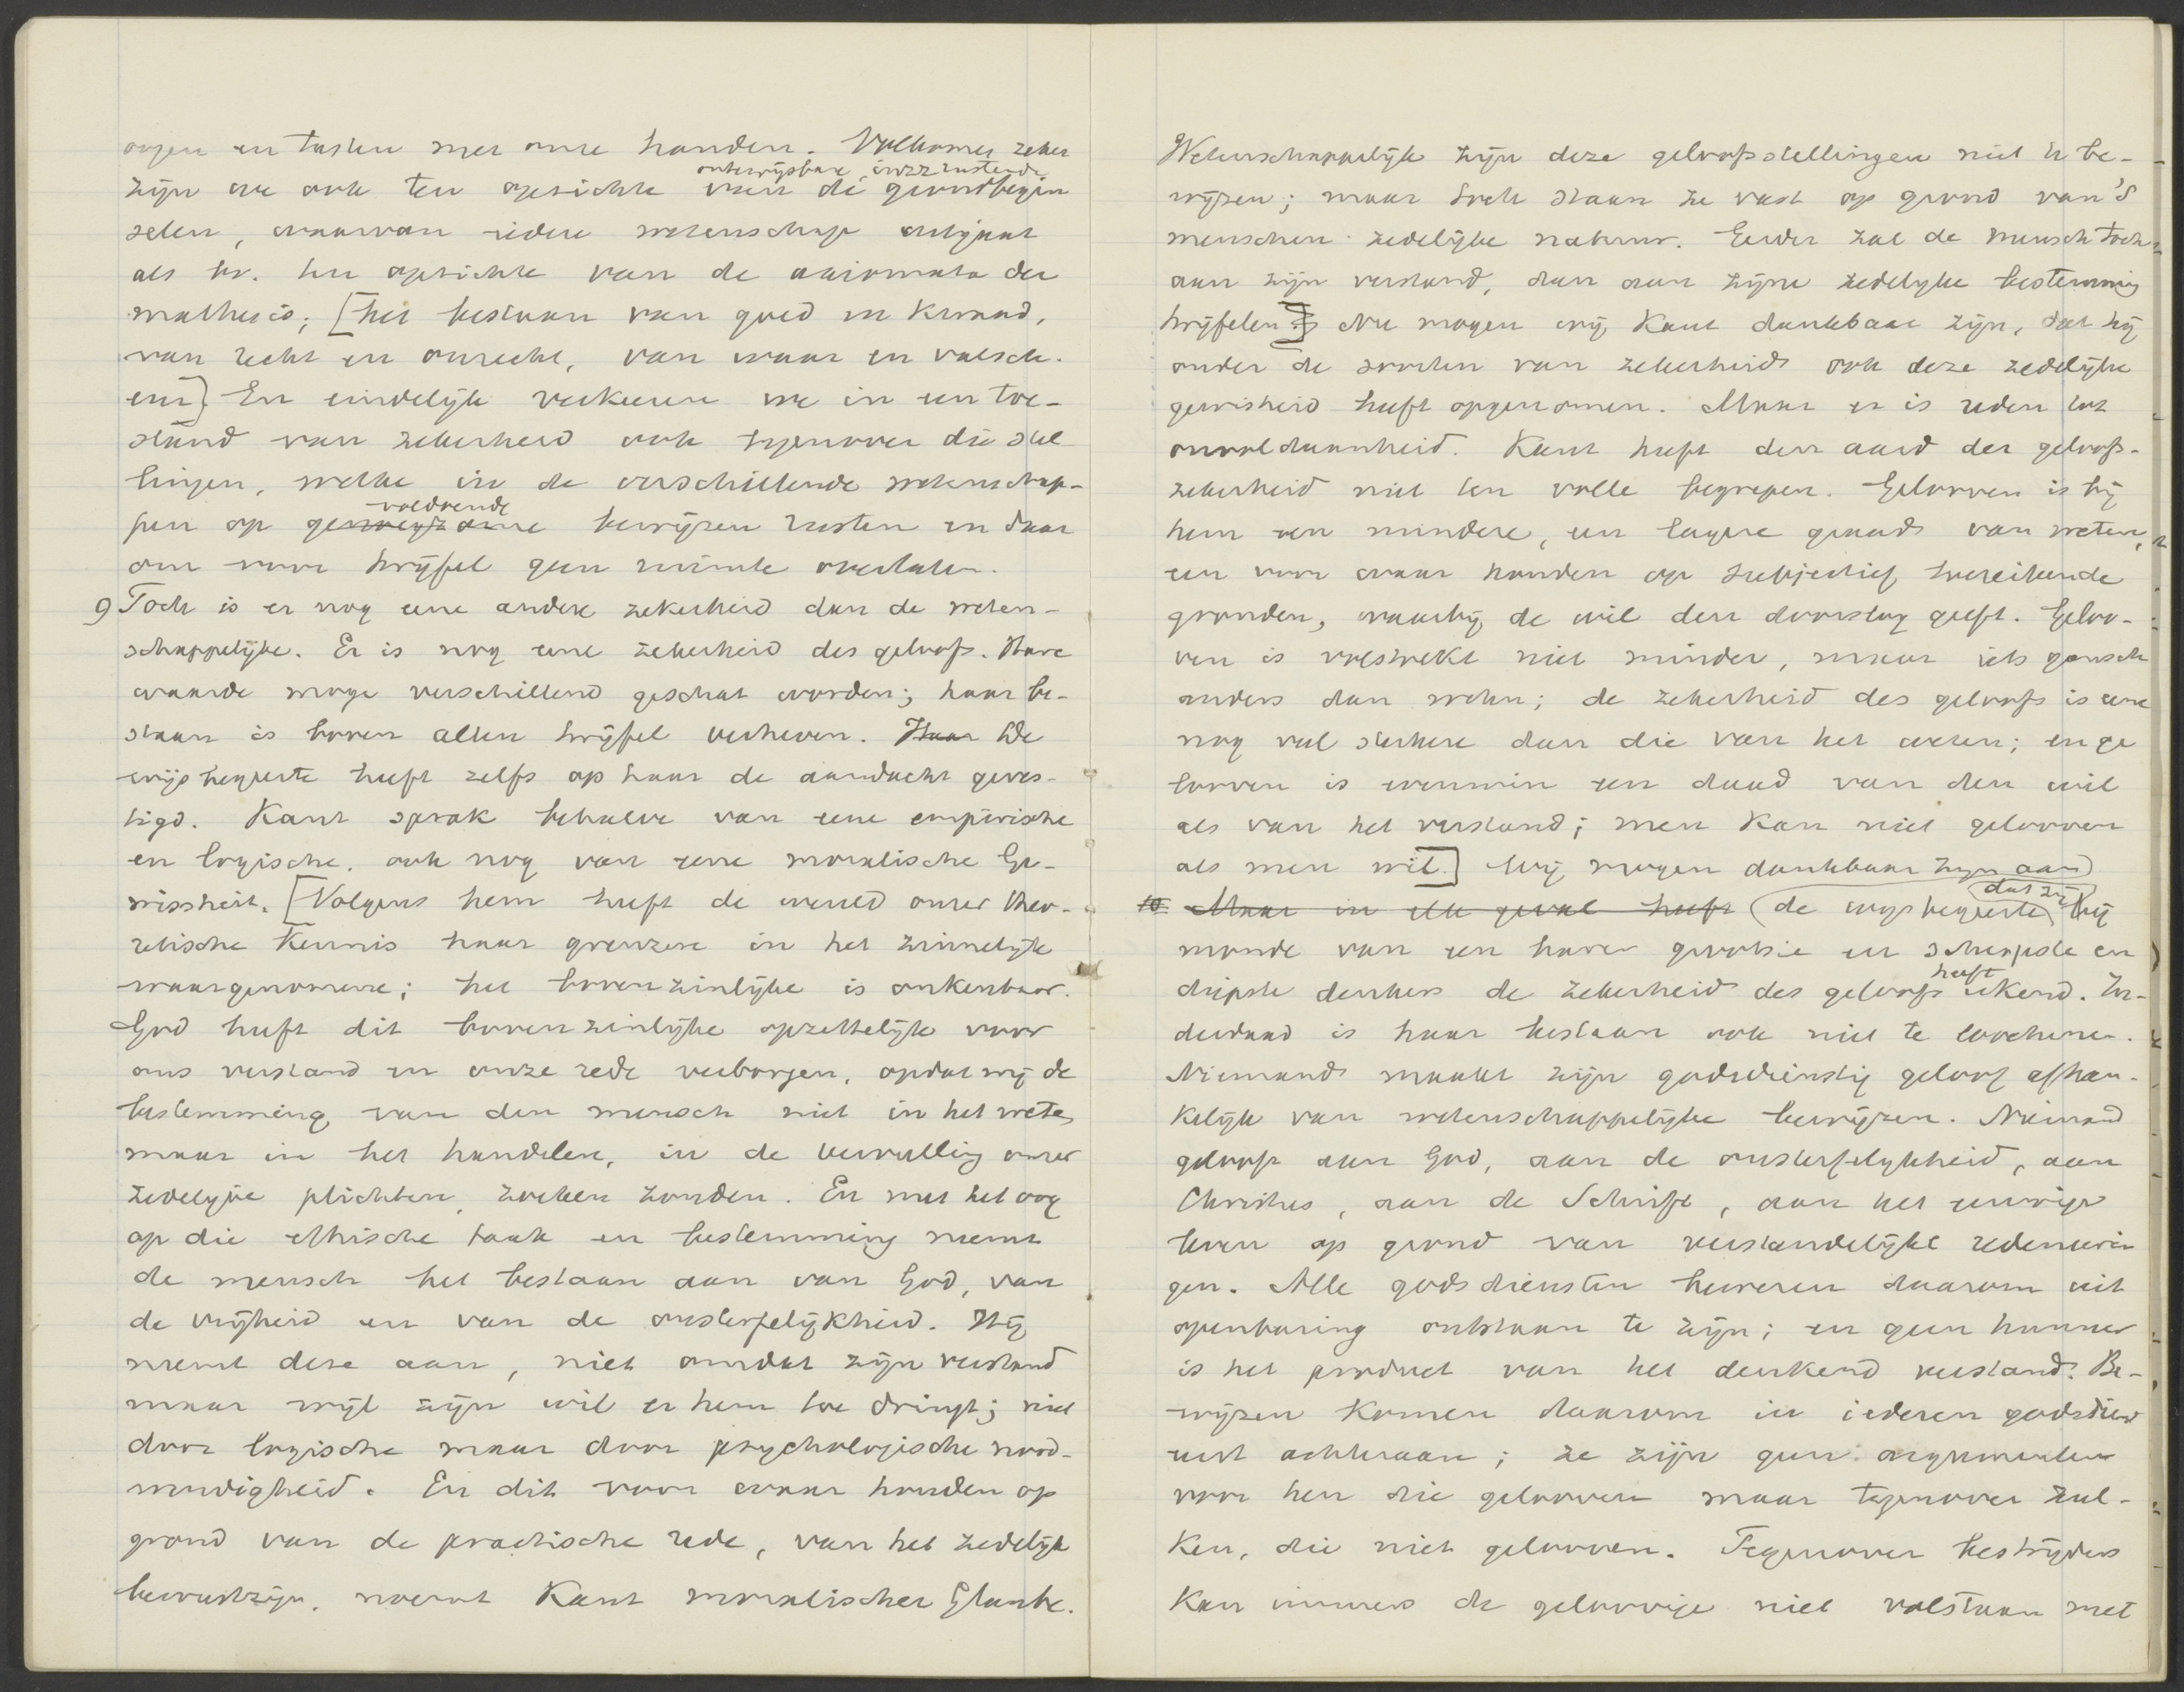 oogen en tasten met onze handen. Volkomen zeker
onbewijsbare, in zz rustende
zijn we ook ten opzichte van de grondbegin
selen, waarvan iedere wetenschap uitgaat
als bv. ten opzichte van de axiomata der
mathesis; [het bestaan van goed en kwaad,
van recht en onrecht, van waar en valsch.
enz]. En eindelijk verkeeren we in een toe-
stand van zekerheid ook tegenover die stel
lingen, welke in de verschillende wetenschap-
voldoende
pen op genoegzame bewijzen rusten en daar
om voor twijfel geen ruimte overlaten.
9 Toch is er nog eene andere zekerheid dan de weten-
schappelijke. Er is nog eene zekerheid des geloofs. Hare
waarde moge verschillend geschat worden; haar be-
staan is boven allen twijfel verheven. Haar De
wijsbegeerte heeft zelfs op haar de aandacht geves-
tigd. Kant sprak behalve van eene empirische
en logische, ook nog van eene moralische Ge-
wissheit. [Volgens hem heeft de wereld onzer theo-
retische kennis haar grenzen in het zinnelijk
waargenomene; het bovenzinlijke is onkenbaar.
God heeft dit bovenzinlijke opzettelijk voor
ons verstand en onze rede verborgen, opdat wij de
bestemming van den mensch niet in het weten
maar in het handelen, in de vervulling onzer
zedelijke plichten, zoeken zouden. En met het oog
op die ethische taak en bestemming neemt
de mensch het bestaan aan van God, van
de vrijheid en van de onsterfelijkheid. Hij
neemt deze aan, niet omdat zijn verstand
maar wijl zijn wil er hem toe dringt; niet
door logische maar door psychologische nood-
wendigheid. En dit voor waar houden op
grond van de practische rede, van het zedelijk
bewustzijn, noemt Kant moralischer Glaube.
Wetenschappelijk zijn deze geloofsstellingen niet te be-
wijzen; maar toch staan ze vast op grond van 's
menschen zedelijke natuur. Eerder zal de mensch toch
aan zijn verstand, dan aan zijne zedelijke bestemming
twijfelen.] Nu mogen wij Kant dankbaar zijn, dat hij
onder de soorten van zekerheid ook deze zedelijke
gewisheid heeft opgenomen. Maar er is reden tot
onvoldaanheid. Kant heeft den aard der geloofs-
zekerheid niet ten volle begrepen. Gelooven is bij
hem een mindere, een lagere graad van weten,
een voor waar houden op subjectief toereikende
gronden, waarbij de wil den doorslag geeft. Geloo-
ven is volstrekt niet minder, maar iets gansch
anders dan weten; de zekerheid des geloofs is eene
nog veel sterkere dan die van het weten; en ge
looven is evenmin een daad van den wil
als van het verstand; men kan niet gelooven
als men wil.] Wij mogen dankbaar zijn aan
10. Maar in elk geval heeft (de wijsbegeerte, dat zij) bij
monde van een harer grootste en scherpste en
diepste denkers de zekerheid des geloofs heeft erkend. In-
derdaad is haar bestaan ook niet te loochenen.
Niemand maakt zijn godsdienstig geloof afhan-
kelijk van wetenschappelijke bewijzen. Niemand
gelooft aan God, aan de onsterfelijkheid, aan
Christus, aan de Schrift, aan het eeuwige
leven op grond van verstandelijke redeneerin
gen. Alle godsdiensten beweren daarom uit
openbaring ontstaan te zijn; en geen hunner
is het product van het denkend verstand. Be-
wijzen komen daarom in iederen godsdienst
eerst achteraan; ze zijn geen argumenten
voor hen die gelooven maar tegenover zul-
ken, die niet gelooven. Tegenover bestrijders
kan immers de geloovige niet volstaan met